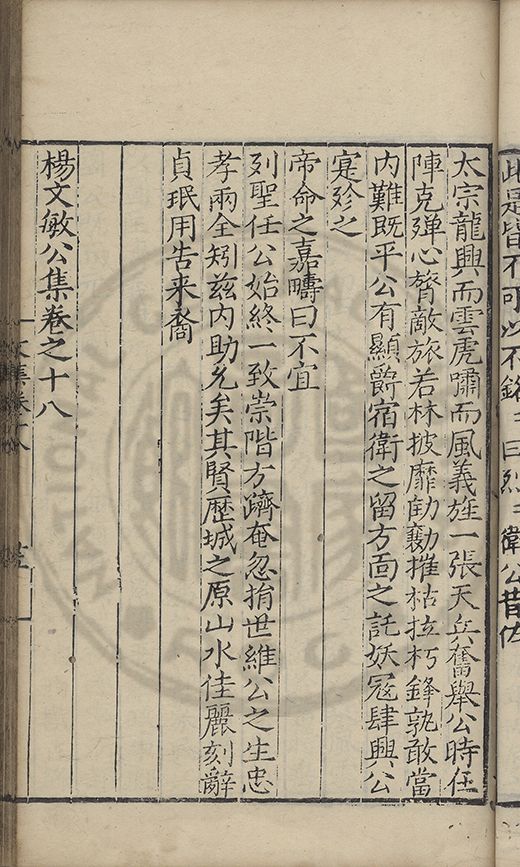 此是皆不可以不銘〻曰烈〻衛公昔佐
太宗龍興而雲虎嘯而風義旌一張天兵奮舉公時在
陣克殫心膂敵旅若林披靡勍勷摧枯拉朽鋒孰敢當
内難既平公有顯爵宿衛之留方面之託妖冦肆興公
寔殄之
帝命之嘉疇曰不宜
列聖任公始終一致崇階方躋奄忽捐世維公之生忠
孝兩全矧兹内助允矣其賢歷城之原山水佳麗刻辭
貞珉用告来裔
楊文敏公集卷之十八